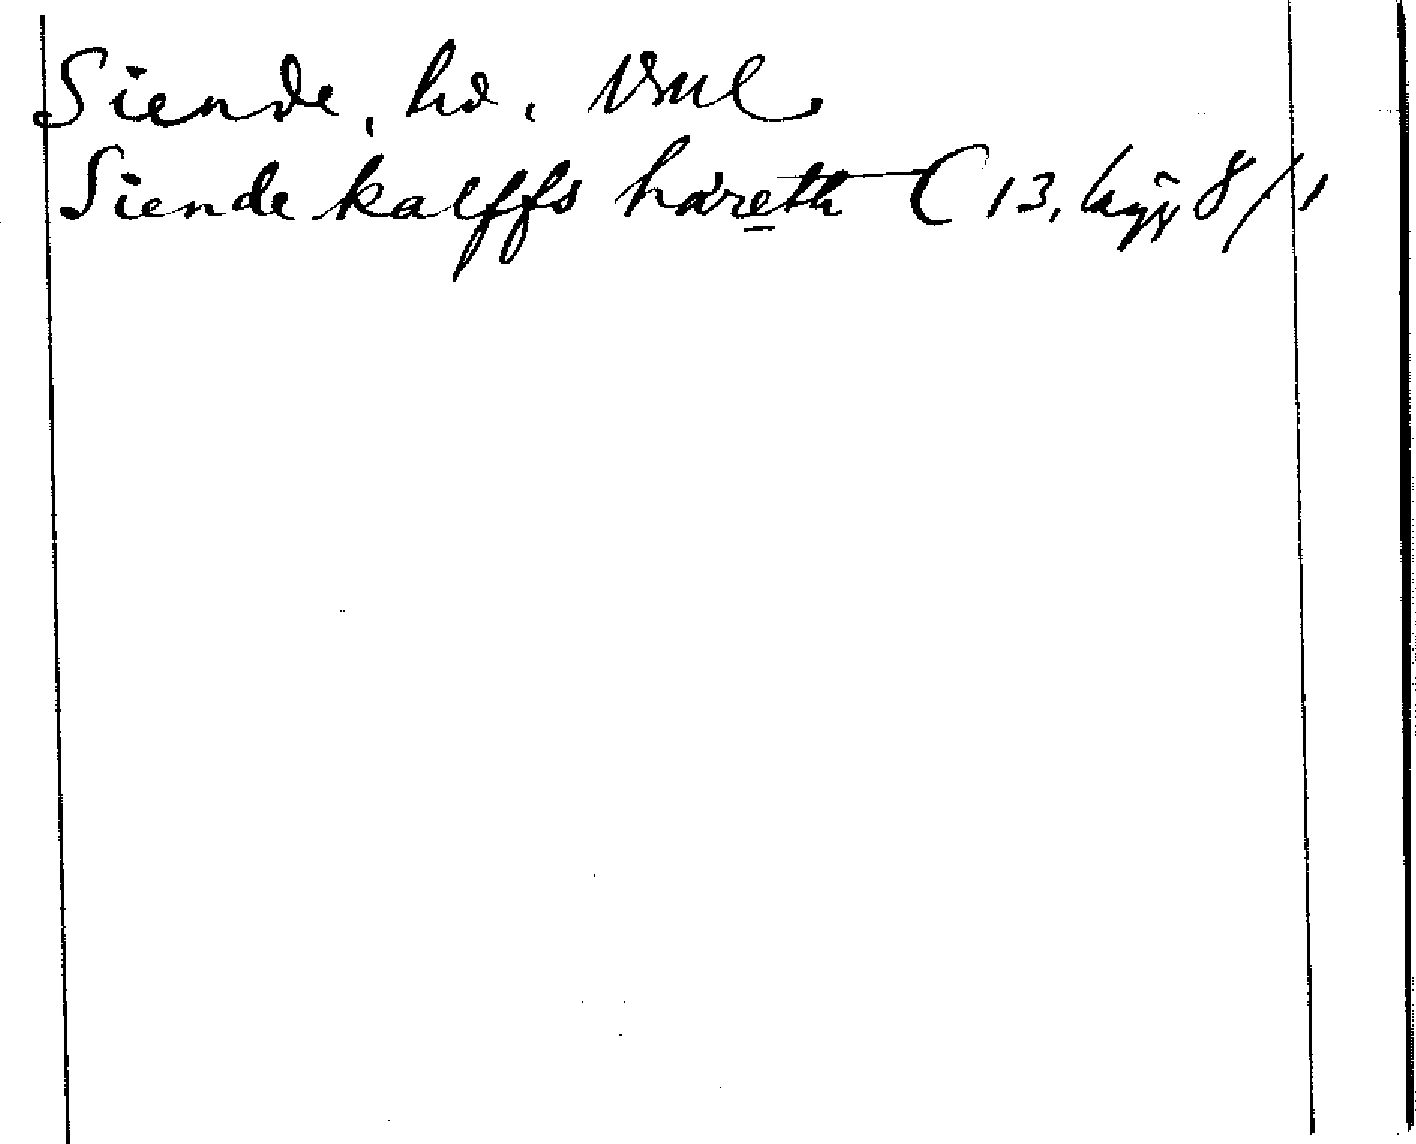 Siende, hd. Vml.
Siende kalffs håreth (13, 8/1